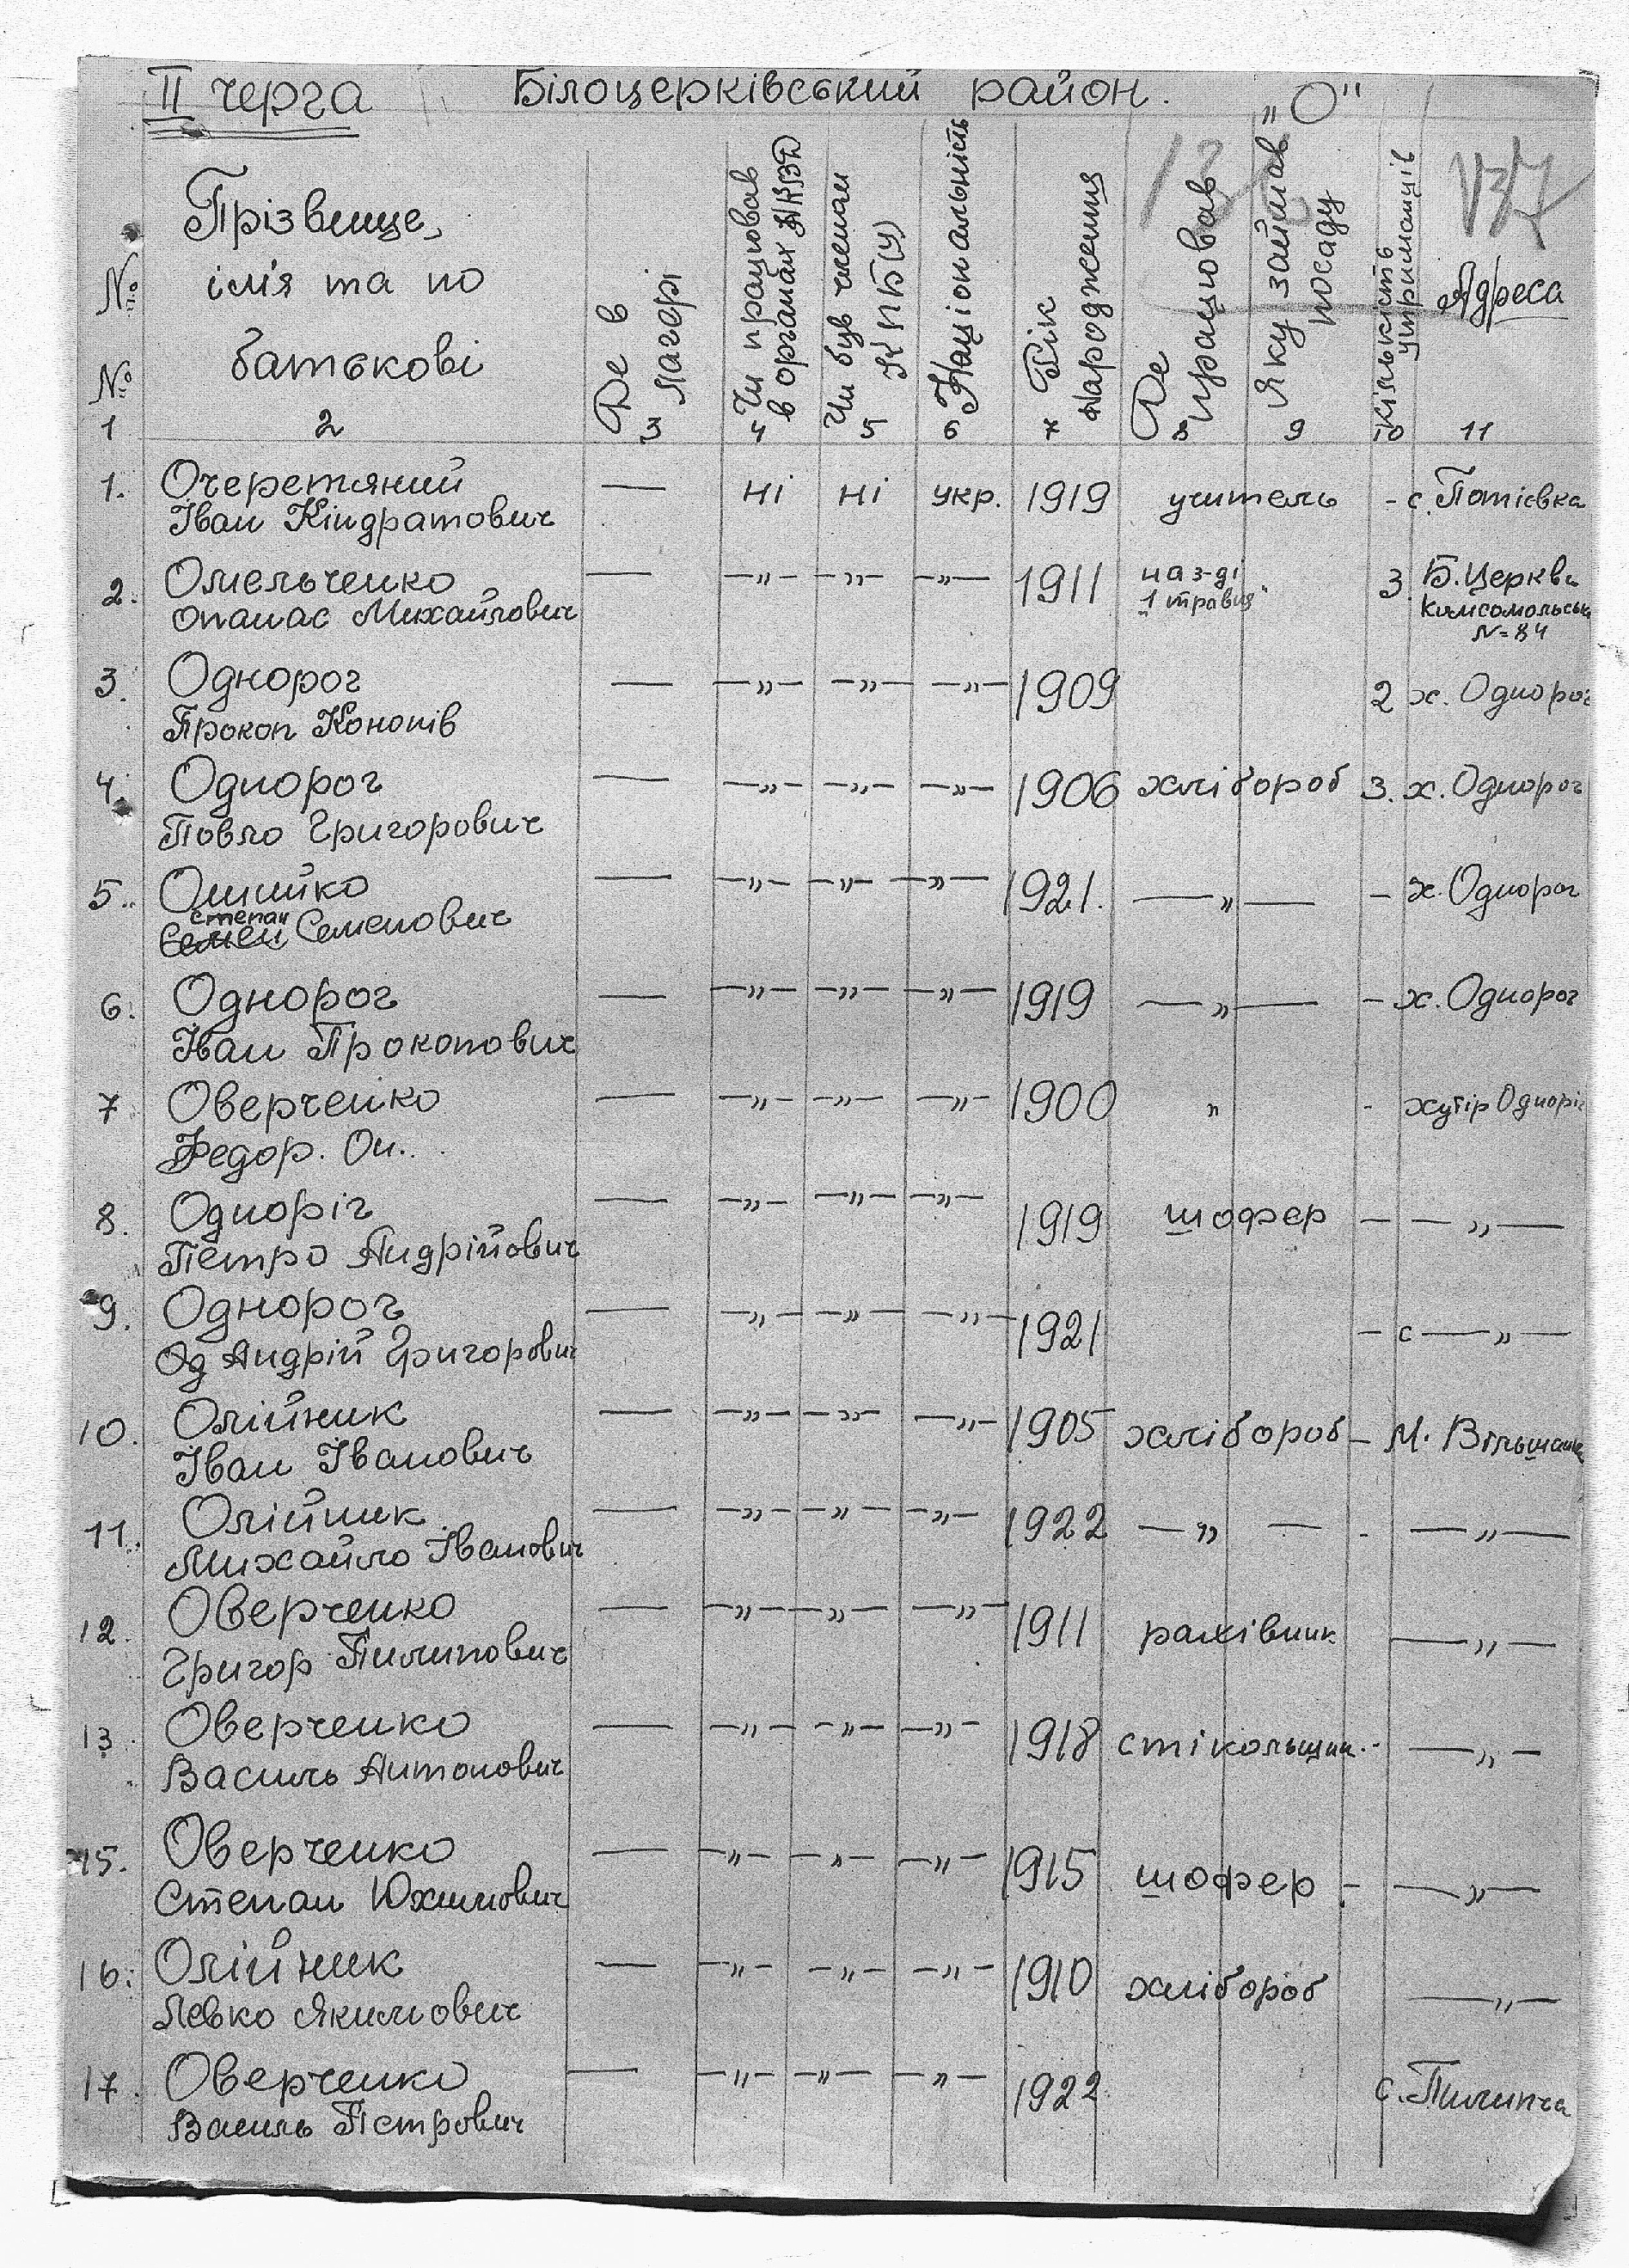 II черга Білоцерківський район. „О"
137
№ № Прізвище, ім'я та по батькові Де в лагері Чи працював в органах НКВД Чи був членом КПБ(У) Національність Рік народження Де працював Яку займав посаду Кількість утриманців Адреса
1 2 3 4 5 6 7 8 9 10 11
1. Очеретяний — ні ні укр. 1919 учитель - с. Потієвка
Іван Кіндратович
2. Омельченко — —„— —„— —„— 1911 на з-ді 3. Б. Церква
Опанас Михайлович „1 травня" Комсомольськ
N=84
3. Однорог — —„— —„— —„— 1909 2 х. Однорог
Прокоп Кононів
4. Однорог — —„— —„— —„— 1906 хлібороб 3. х. Однорог
Повло Григорович
5. Ошийко — —„— —„— —„— 1921. —„— - х. Однорог
степан
Семен Семенович
6. Однорог — —„— —„— —„— 1919 —„— - х. Однорог
Іван Прокопович
7 Оверченко — —„— —„— —„— 1900 „ - хутір Одноріг
Федор. Он..
8. Одноріг — —„— —„— —„— 1919 шофер — —„—
Петро Андрійович
9. Однорог — —„— —„— —„— 1921 — с —„—
Од Андрій Григорович
10. Олійник — —„— —„— —„— 1905 хлібороб — М. Вільшанка
Іван Іванович
11. Олійник — —„— —„— —„— 1922 —„— — - —„—
Михайло Іванович
12. Оверченко — —„— —„— —„— 1911 рахівник —„—
Григор Пилипович
13. Оверченко — —„— —„— —„— 1918 стікольщик.- —„—
Василь Антонович
15. Оверченко — —„— —„— —„— 1915 шофер - —„—
Степан Юхимович
16. Олійник — —„— —„— —„— 1910 хлібороб —„—
Левко Якимович
17. Оверченко — —„— —„— —„— 1922 с. Пилипча
Василь Петрович